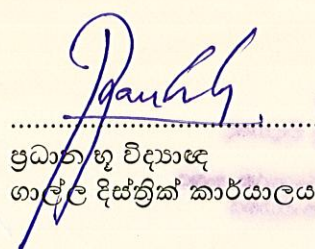 ප්‍රධාන භූ විද්‍යාඥ
ගාල්ල දිස්ත්‍රික් කාර්යාලය